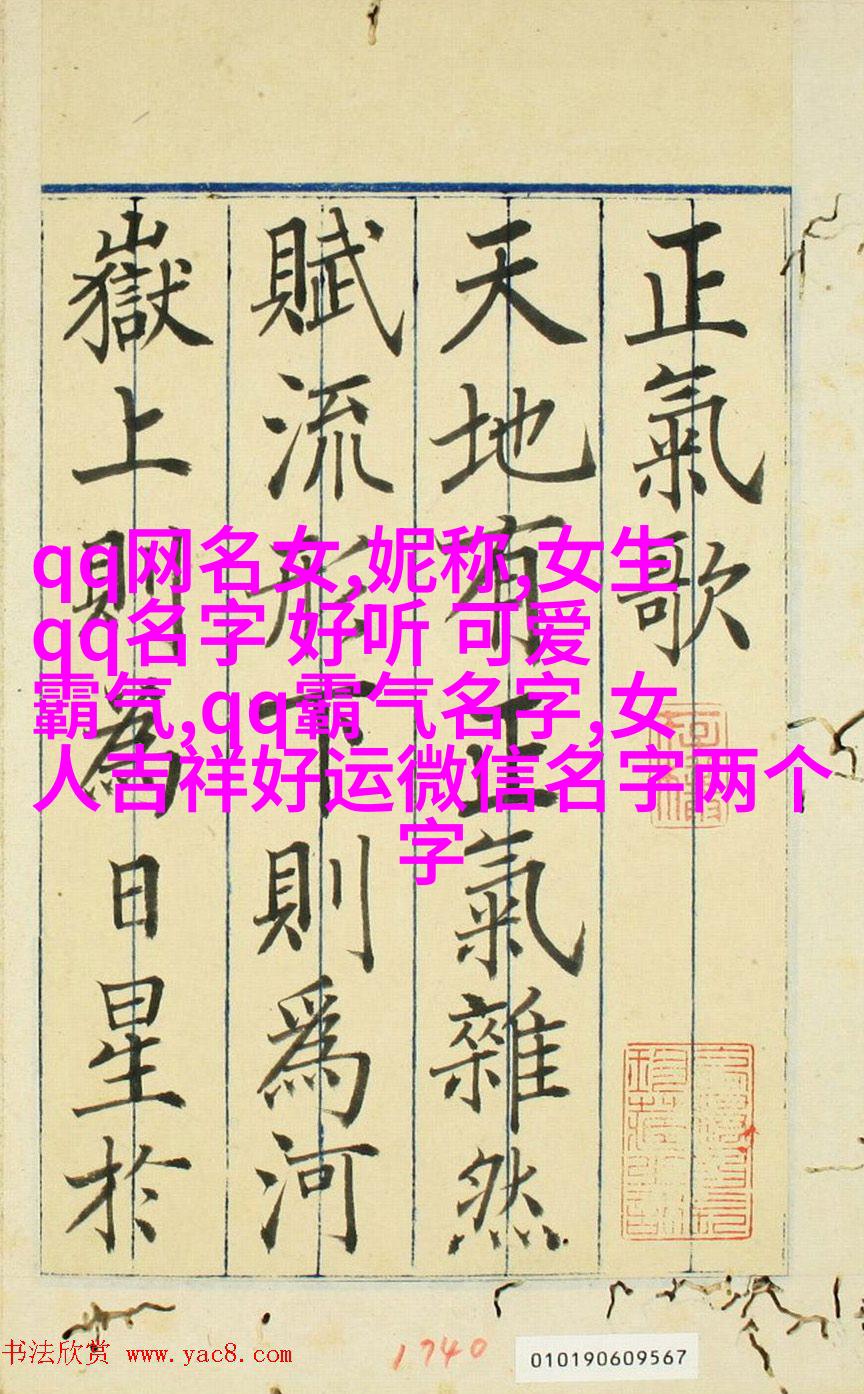 正氣歌
天地有正氣雜然
賦流形下則爲河
嶽上則為日星於
qq网名女,妮称,女生
qq名字 好听 可爱
霸气,qq霸气名字,女
人吉祥好运微信名字两个
字
书法欣赏 www.yac8.com
1740
010190609567